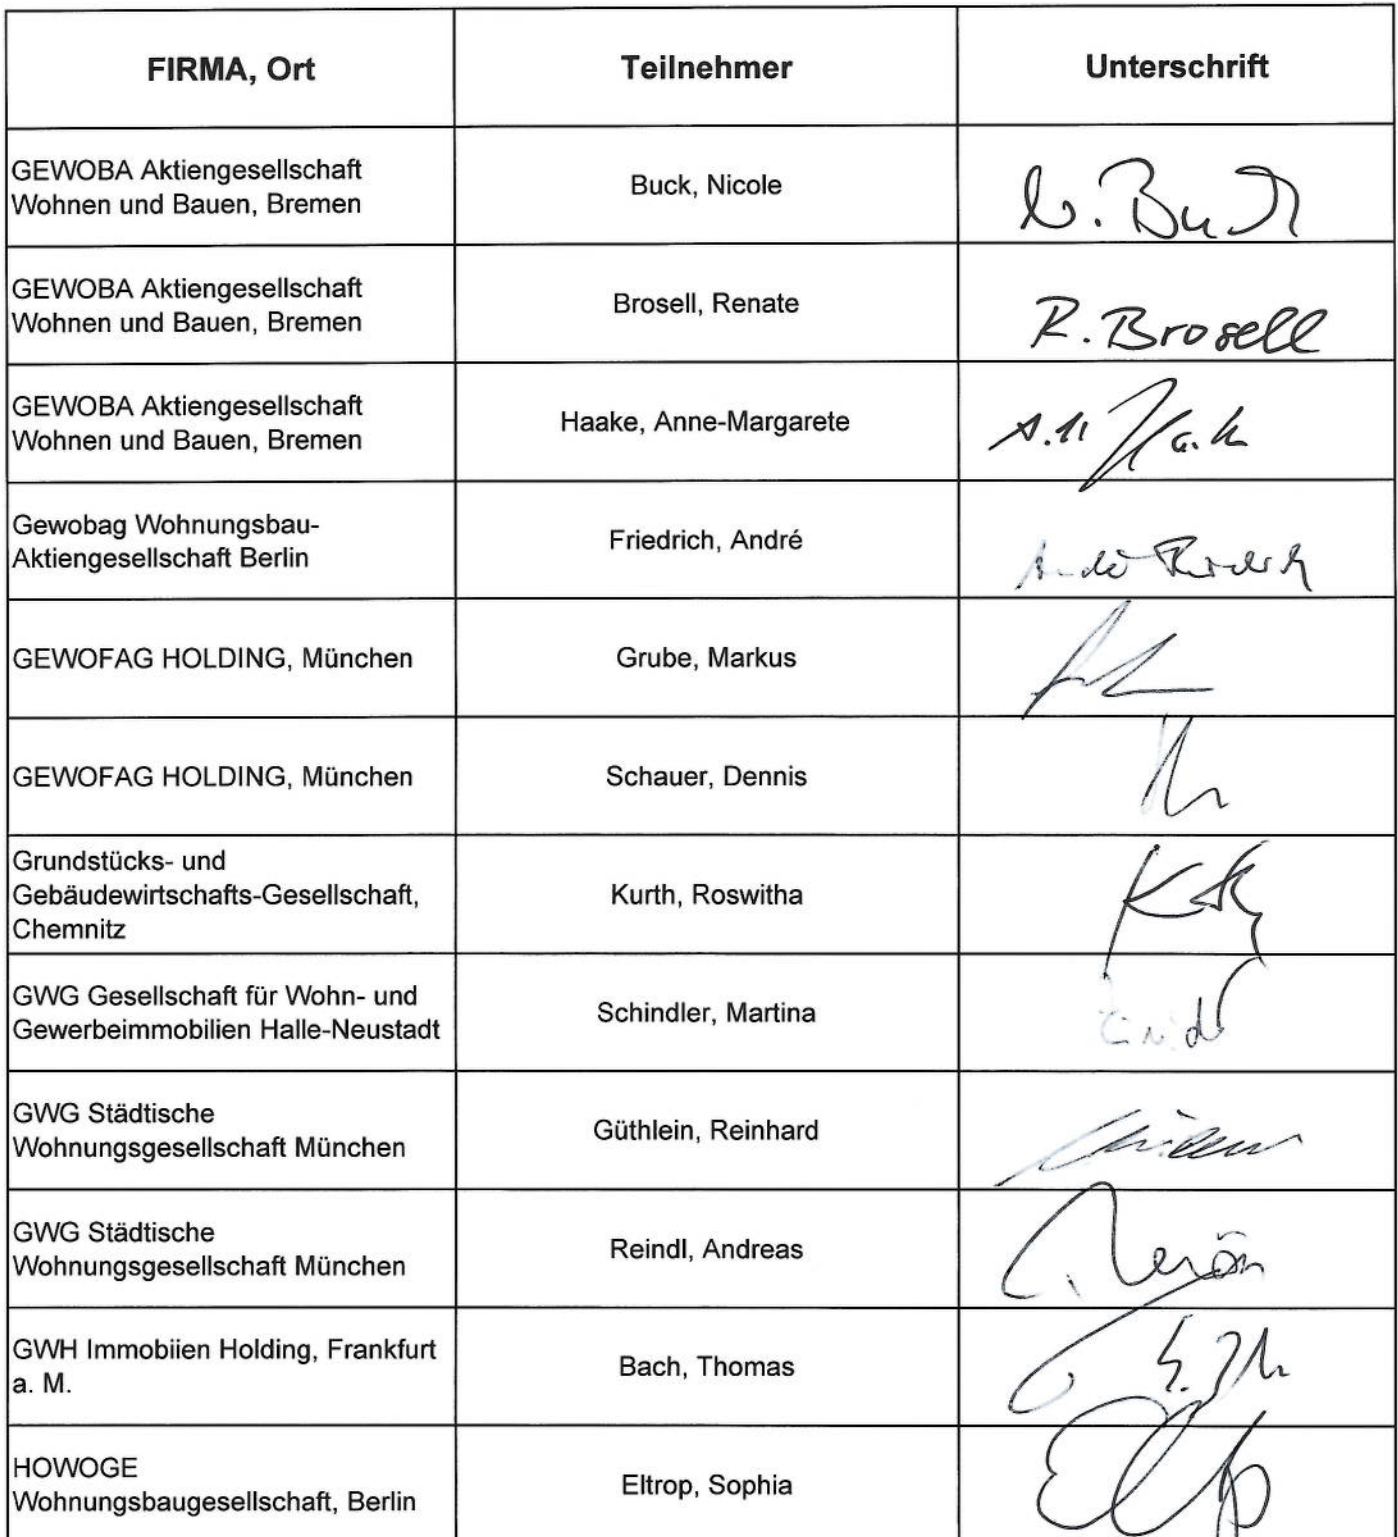 FIRMA, Ort
Teilnehmer
Unterschrift
GEWOBA Aktiengesellschaft
Wohnen und Bauen, Bremen
Buck, Nicole
N. Buck
GEWOBA Aktiengesellschaft
Wohnen und Bauen, Bremen
Brosell, Renate
R. Brosell
GEWOBA Aktiengesellschaft
Wohnen und Bauen, Bremen
Haake, Anne-Margarete
Gewobag Wohnungsbau-
Aktiengesellschaft Berlin
Friedrich, André
GEWOFAG HOLDING, München
Grube, Markus
GEWOFAG HOLDING, München
Schauer, Dennis
Grundstücks- und
Gebäudewirtschafts-Gesellschaft,
Chemnitz
Kurth, Roswitha
GWG Gesellschaft für Wohn- und
Gewerbeimmobilien Halle-Neustadt
Schindler, Martina
GWG Städtische
Wohnungsgesellschaft München
Güthlein, Reinhard
GWG Städtische
Wohnungsgesellschaft München
Reindl, Andreas
GWH Immobiien Holding, Frankfurt
a. M.
Bach, Thomas
HOWOGE
Wohnungsbaugesellschaft, Berlin
Eltrop, Sophia